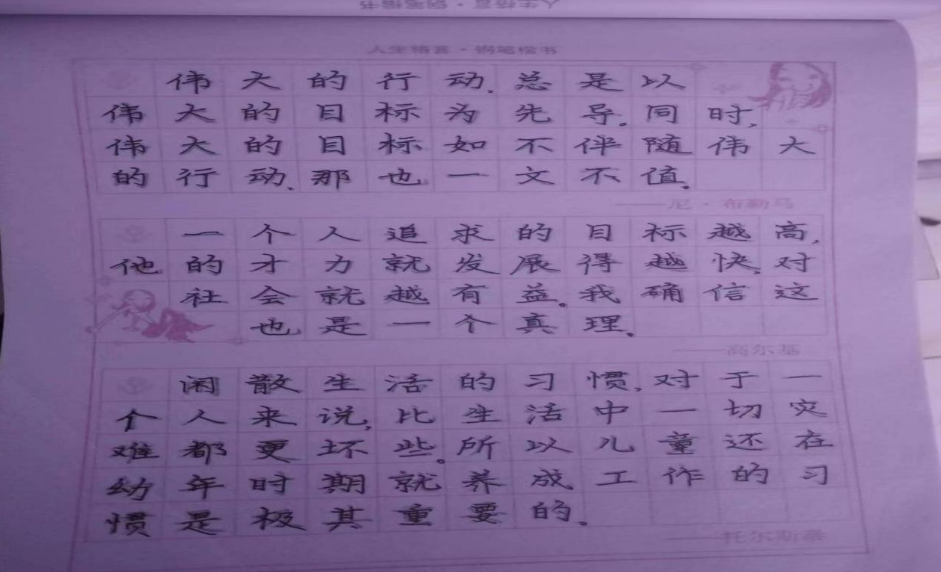 人生格言·钢笔楷书
伟大的行动，总是以
伟大的目标为先导。同时，
伟大的目标如不伴随伟大
的行动，那也一文不值。
——尼·布勒马
一个人追求的目标越高，
他的才力就发展得越快，对
社会就越有益。我确信这
也是一个真理。
——高尔基
闲散生活的习惯，对于一
个人来说，比生活中一切灾
难都更坏些。所以儿童还在
幼年时期就养成工作的习
惯是极其重要的。
——托尔斯泰